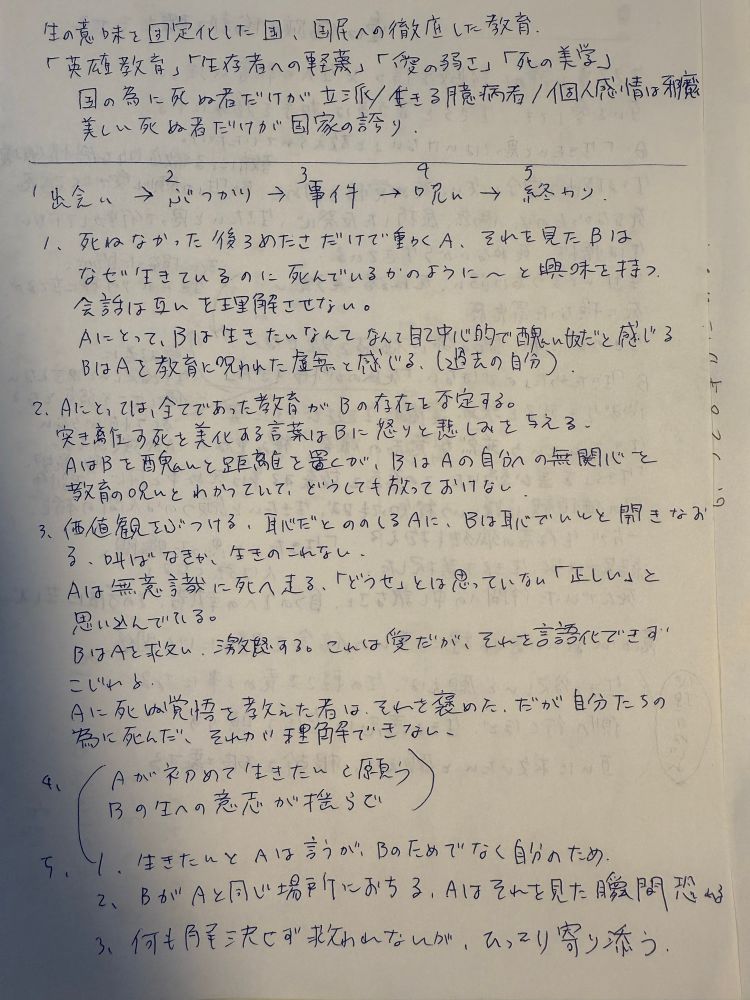 生の意味を固定化した国、国民への徹底した教育.
「英雄教育」「生存者への軽蔑」「愛の弱さ」「死の美学」
国の為に死ぬ者だけが立派/生きる臆病者/個人感情は邪魔
美しい死ぬ者だけが国家の誇り.
1 出会い → 2 ぶつかり → 3 事件 → 4 呪い → 5 終わり.
1、死ねなかった後ろめたさだけで動くA、それを見たBは
なぜ生きているのに死んでいるかのように〜と興味を持つ.
会話は互いを理解させない。
Aにとって、Bは生きたいなんてなんて自己中心的で醜い奴だと感じる
BはAを教育に呪われた虚無と感じる、(過去の自分).
2、Aにとっては、全てであった教育がBの存在を否定する。
突き離す死を美化する言葉はBに怒りと悲しみを与える.
AはBを醜いと距離を置くが、BはAの自分への無関心を
教育の呪いとわかっていて、どうしても放っておけない.
3、価値観をぶつける、恥だとののしるAに、Bは恥でいいと開きなお
る、叫ばなきゃ、生きのこれない.
Aは無意識に死へ走る、「どうせ」とは思っていない「正しい」と
思い込んでいる。
BはAを救い、激怒する。これは愛だが、それを言語化できず
こじれる.
Aに死ぬ覚悟を教えた者は、それを褒めた、だが自分たちの
為に死んだ、それが理解できない.
4、(Aが初めて生きたいと願う
Bの生への意志が揺らで)
5、1、生きたいとAは言うが、Bのためでなく自分のため.
2、BがAと同じ場所におちる、Aはそれを見た瞬間恐れる
3、何も解決せず救われないが、ひっそり寄り添う.